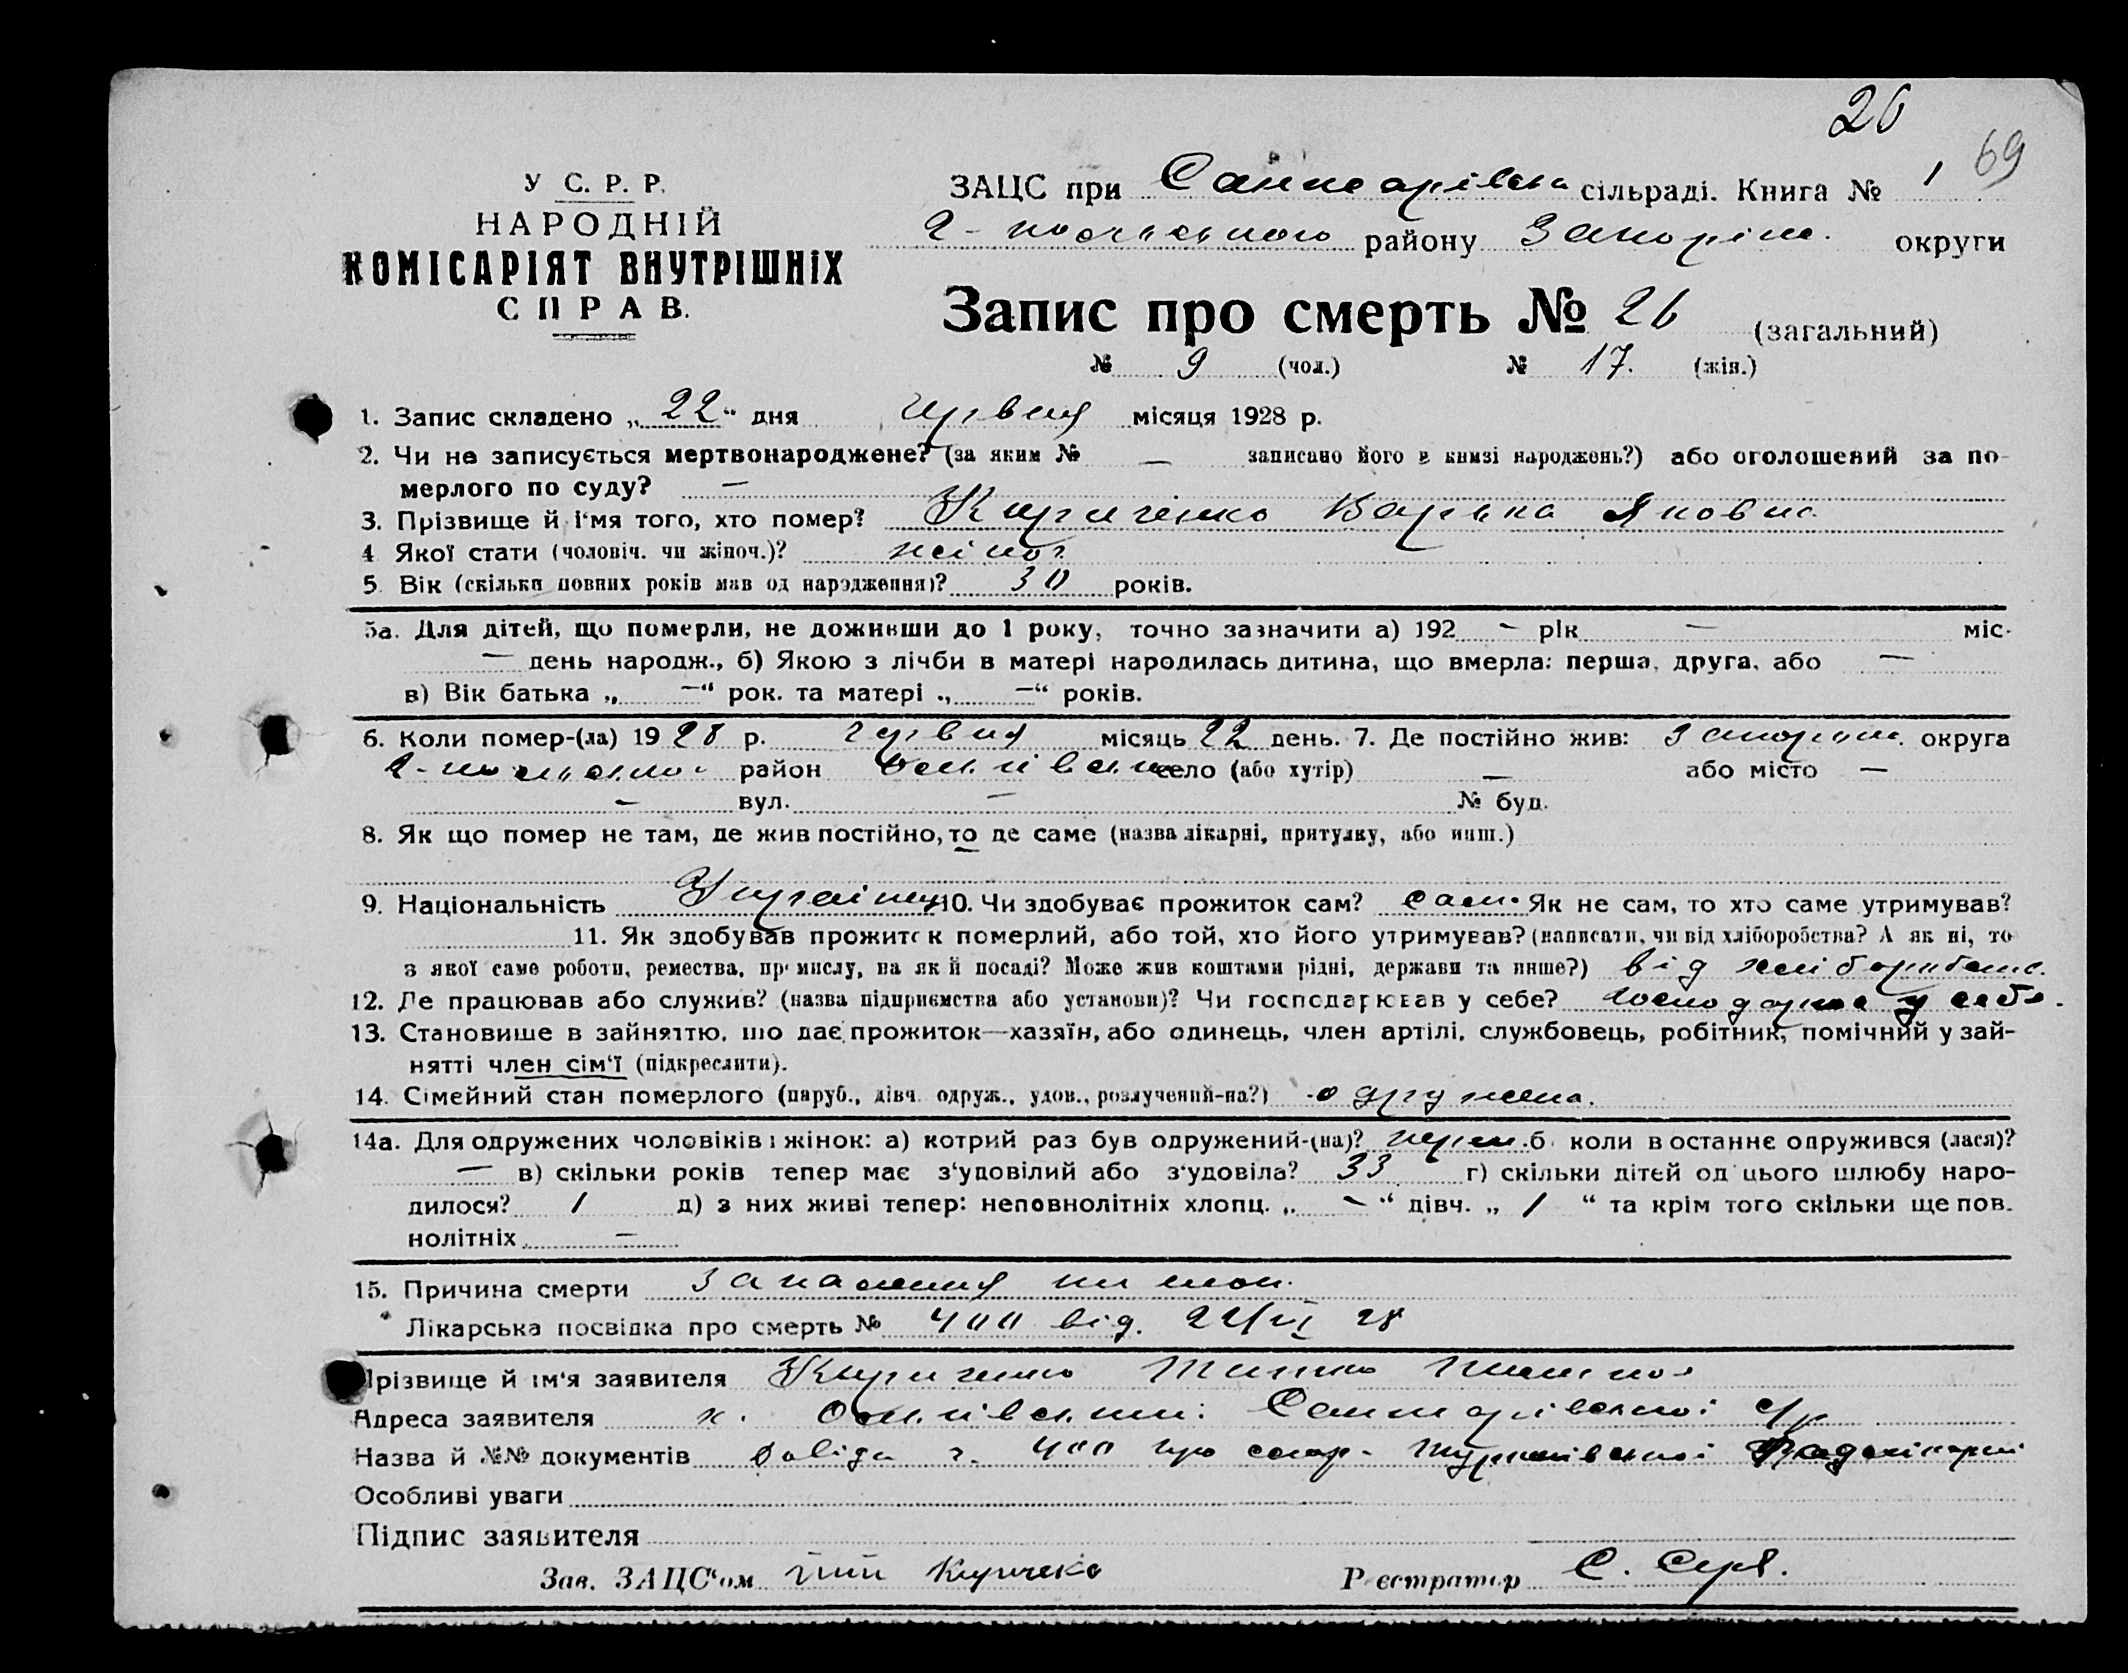 26
69
У С. Р. Р.
НАРОДНІЙ
КОМІСАРІЯТ ВНУТРІШНІХ
СПРАВ.
ЗАЦС при сільраді. Книга № 1
району Запоріж. округи
Запис про смерть № 26 (загальний)
№ 9 (чол.) № 17. (жін.)
1. Запис складено „22“ дня червня місяця 1928 р.
2. Чи не записується мертвонароджене? (за яким № — записано його в книзі народжень?) або оголошений за по-
мерлого по суду? —
3. Прізвище й ім'я того, хто помер? Кириченко Варька Яковна
4 Якої стати (чоловіч. чи жіноч.)? жіноч.
5. Вік (скільки повних років мав од народження)? 30 років.
5а. Для дітей, що померли, не доживши до 1 року, точно зазначити а) 192 — рік — міс.
— день народж., б) Якою з лічби в матері народилась дитина, що вмерла: перша, друга, або —
в) Вік батька „ —“ рок. та матері „ —“ років.
6. Коли помер-(ла) 1928 р. червня місяць 22 день. 7. Де постійно жив: Запоріж. округа
район село (або хутір) — або місто —
— вул. — № буд.
8. Як що помер не там, де жив постійно, то де саме (назва лікарні, притулку, або инш.)
9. Національність 10. Чи здобуває прожиток сам? сам. Як не сам, то хто саме утримував?
11. Як здобував прожиток померлий, або той, хто його утримував? (написати, чи від хліборобства? А як ні, то
з якої саме роботи, ремества, промислу, на якій посаді? Може жив коштами рідні, держави та инше?) від хліборобства.
12. Де працював або служив? (назва підприємства або установи)? Чи господарював у себе? у себе.
13. Становище в зайняттю, що дає прожиток—хазяїн, або одинець, член артілі, службовець, робітник, помічний у зай-
нятті член сім'ї (підкреслити).
14. Сімейний стан померлого (паруб., дівч. одруж., удов., розлучений-на?) одружена.
14а. Для одружених чоловіків і жінок: а) котрий раз був одружений-(на)? перш. б коли востаннє одружився (лася)?
— в) скільки років тепер має з'удовілий або з'удовіла? 33 г) скільки дітей од цього шлюбу наро-
дилося? 1 д) з них живі тепер: неповнолітніх хлопц. „ —“ дівч. „ 1 “ та крім того скільки ще пов-
нолітніх —
15. Причина смерти запалення
Лікарська посвідка про смерть № 400 від. 22/VI 28
Прізвище й ім'я заявителя Кириченко
Адреса заявителя х.
Назва й №№ документів 400 про смер.
Особливі уваги
Підпис заявителя
Зав. ЗАЦС'ом
Реєстратор С.